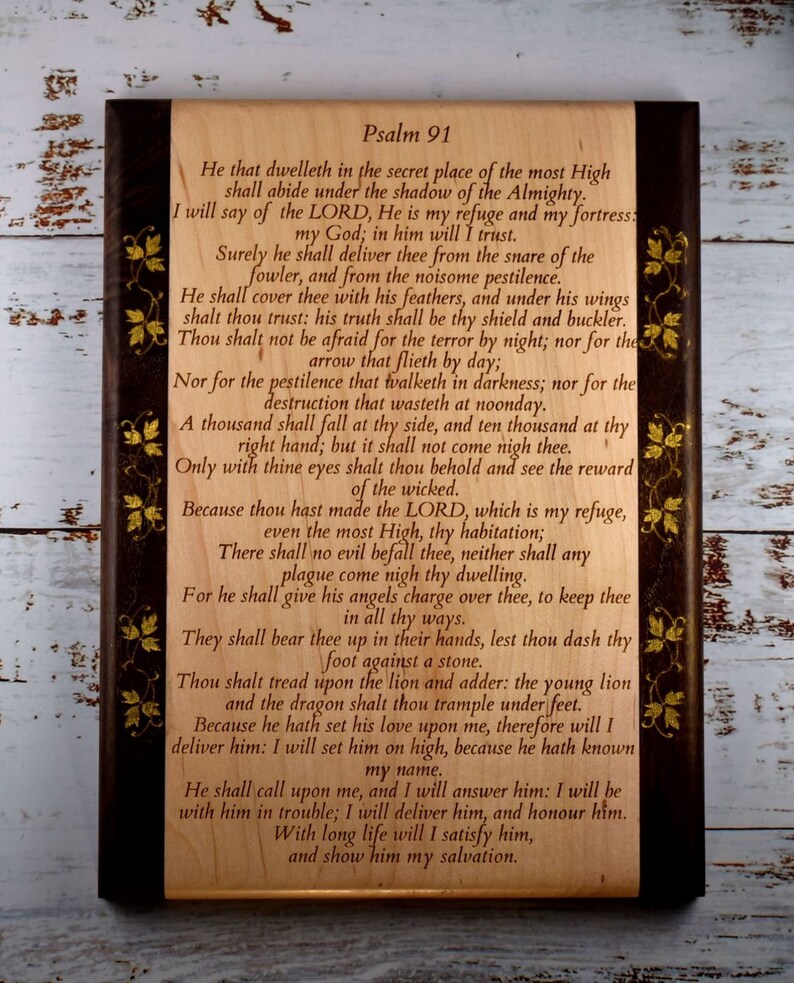 Psalm 91
He that dwelleth in the secret place of the most High
shall abide under the shadow of the Almighty.
I will say of the LORD, He is my refuge and my fortress:
my God; in him will I trust.
Surely he shall deliver thee from the snare of the
fowler, and from the noisome pestilence.
He shall cover thee with his feathers, and under his wings
shalt thou trust: his truth shall be thy shield and buckler.
Thou shalt not be afraid for the terror by night; nor for the
arrow that flieth by day;
Nor for the pestilence that walketh in darkness; nor for the
destruction that wasteth at noonday.
A thousand shall fall at thy side, and ten thousand at thy
right hand; but it shall not come nigh thee.
Only with thine eyes shalt thou behold and see the reward
of the wicked.
Because thou hast made the LORD, which is my refuge,
even the most High, thy habitation;
There shall no evil befall thee, neither shall any
plague come nigh thy dwelling.
For he shall give his angels charge over thee, to keep thee
in all thy ways.
They shall bear thee up in their hands, lest thou dash thy
foot against a stone.
Thou shalt tread upon the lion and adder: the young lion
and the dragon shalt thou trample under feet.
Because he hath set his love upon me, therefore will I
deliver him: I will set him on high, because he hath known
my name.
He shall call upon me, and I will answer him: I will be
with him in trouble; I will deliver him, and honour him.
With long life will I satisfy him,
and show him my salvation.